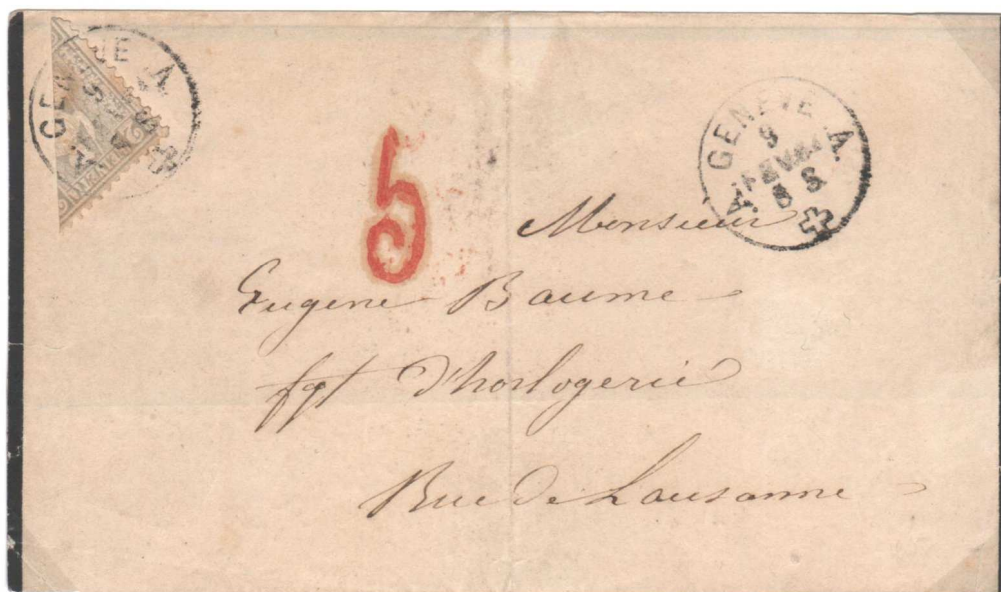 GENÈVE A.
GENÈVE A.
5
Monsieur
Eugene Baume
fqt d'horlogerie
Rue de Lausanne